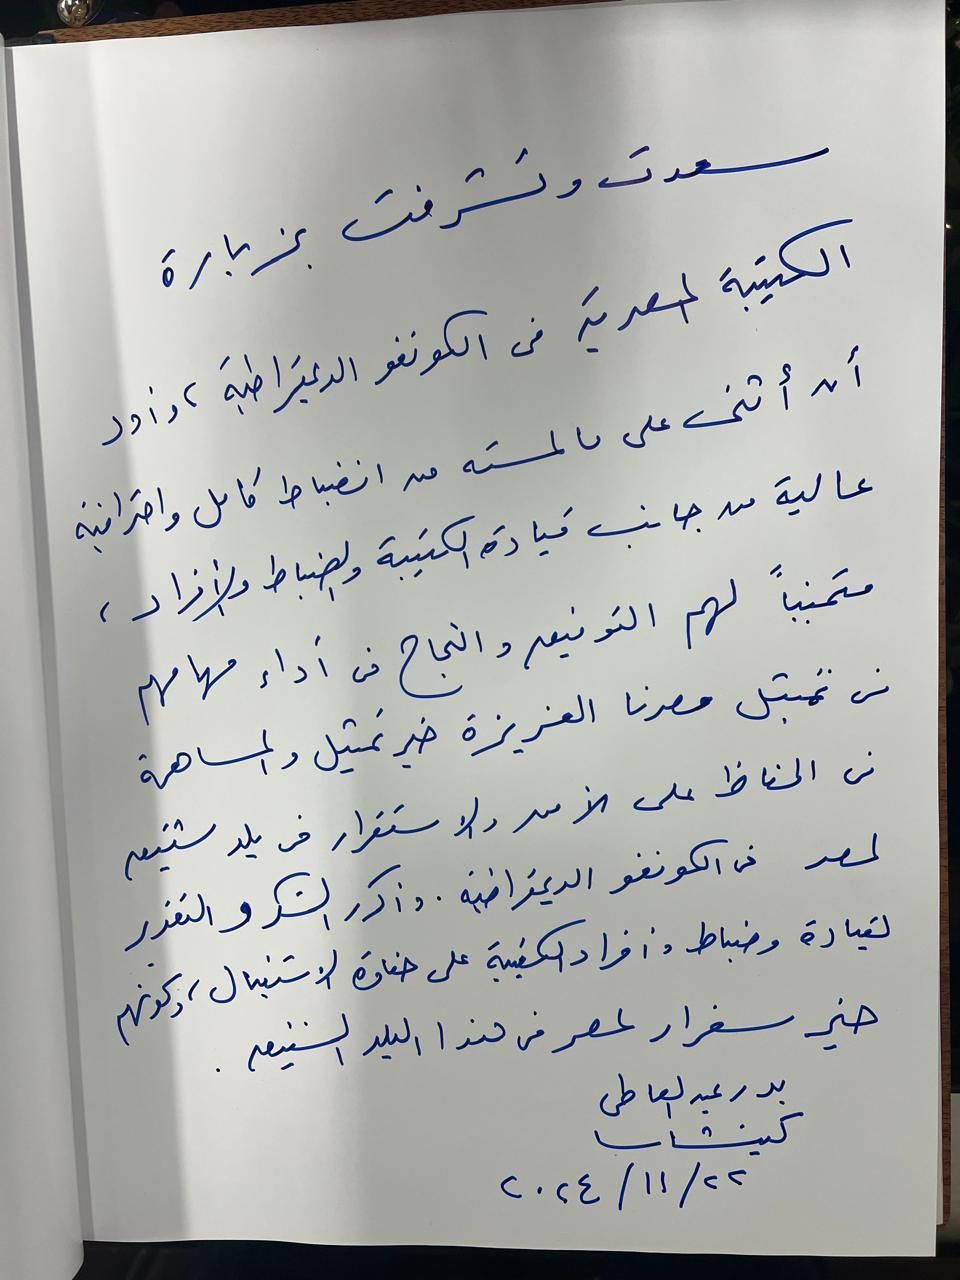 سعدت وتشرفت بزيارة
الكتيبة المصرية فى الكونغو الديمقراطية، وأود
أن أثنى على ما لمسته من انضباط كامل واحترافية
عالية من جانب قيادة الكتيبة والضباط والأفراد،
متمنياً لهم التوفيق والنجاح فى أداء مهامهم
فى تمثيل مصرنا العزيزة خير تمثيل والمساهمة
فى الحفاظ على الأمن والاستقرار فى بلد شقيق
لمصر فى الكونغو الديمقراطية. وأكرر الشكر والتقدير
لقيادة وضباط وأفراد الكتيبة على حفاوة الاستقبال، وكونهم
خير سفراء لمصر فى هذا البلد الشقيق.
بدر عبد العاطى
كينشاسا
٢٢/١١/٢٠٢٤